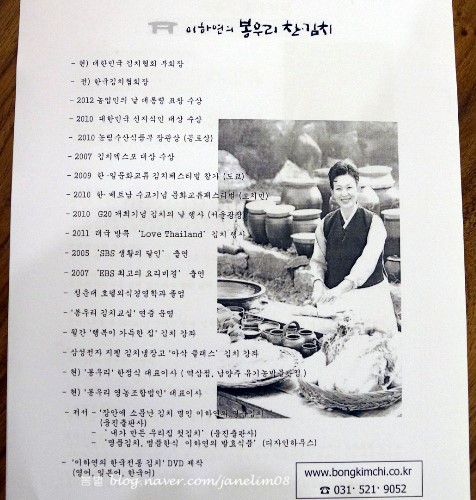 이하연의 봉우리 찬·김치
- 현) 대한민국 김치협회 부회장
- 전) 한국김치협회장
- 2012 농업인의 날 대통령 표창 수상
- 2010 대한민국 신지식인 대상 수상
- 2010 농림수산식품부 장관상 (공로상)
- 2007 김치엑스포 대상 수상
- 2009 한·일문화교류 김치페스티벌 참가 (도쿄)
- 2010 한·베트남 수교기념 문화교류페스티벌 (호치민)
- 2010 G20 개최기념 김치의 날 행사 (서울광장)
- 2011 태국 방콕 'Love Thailand' 김치 행사
- 2005 'SBS 생활의 달인' 출연
- 2007 'EBS 최고의 요리비결' 출연
- 청운대 호텔외식경영학과 졸업
- '봉우리 김치교실' 연중 운영
- 월간 '행복이 가득한 집' 김치 강좌
- 삼성전자 지펠 김치냉장고 '아삭 클래스' 김치 강좌
- 현) '봉우리' 한정식 대표이사 ( 역삼점, 남양주 유기농박물관점 )
- 현) '봉우리 영농조합법인' 대표이사
- 저서 - '장안에 소문난 김치 명인 이하연의
(웅진출판사)
- ' 내가 만든 우리집 첫김치' (웅진출판사)
- '명품김치, 명품한식 이하연의 발효식품' (디자인하우스)
- '이하연의 한국전통 김치' DVD 제작
(영어, 일본어, 한국어)
www.bongkimchi.co.kr
☎ 031· 521· 9052
blog.naver.com/janelim08